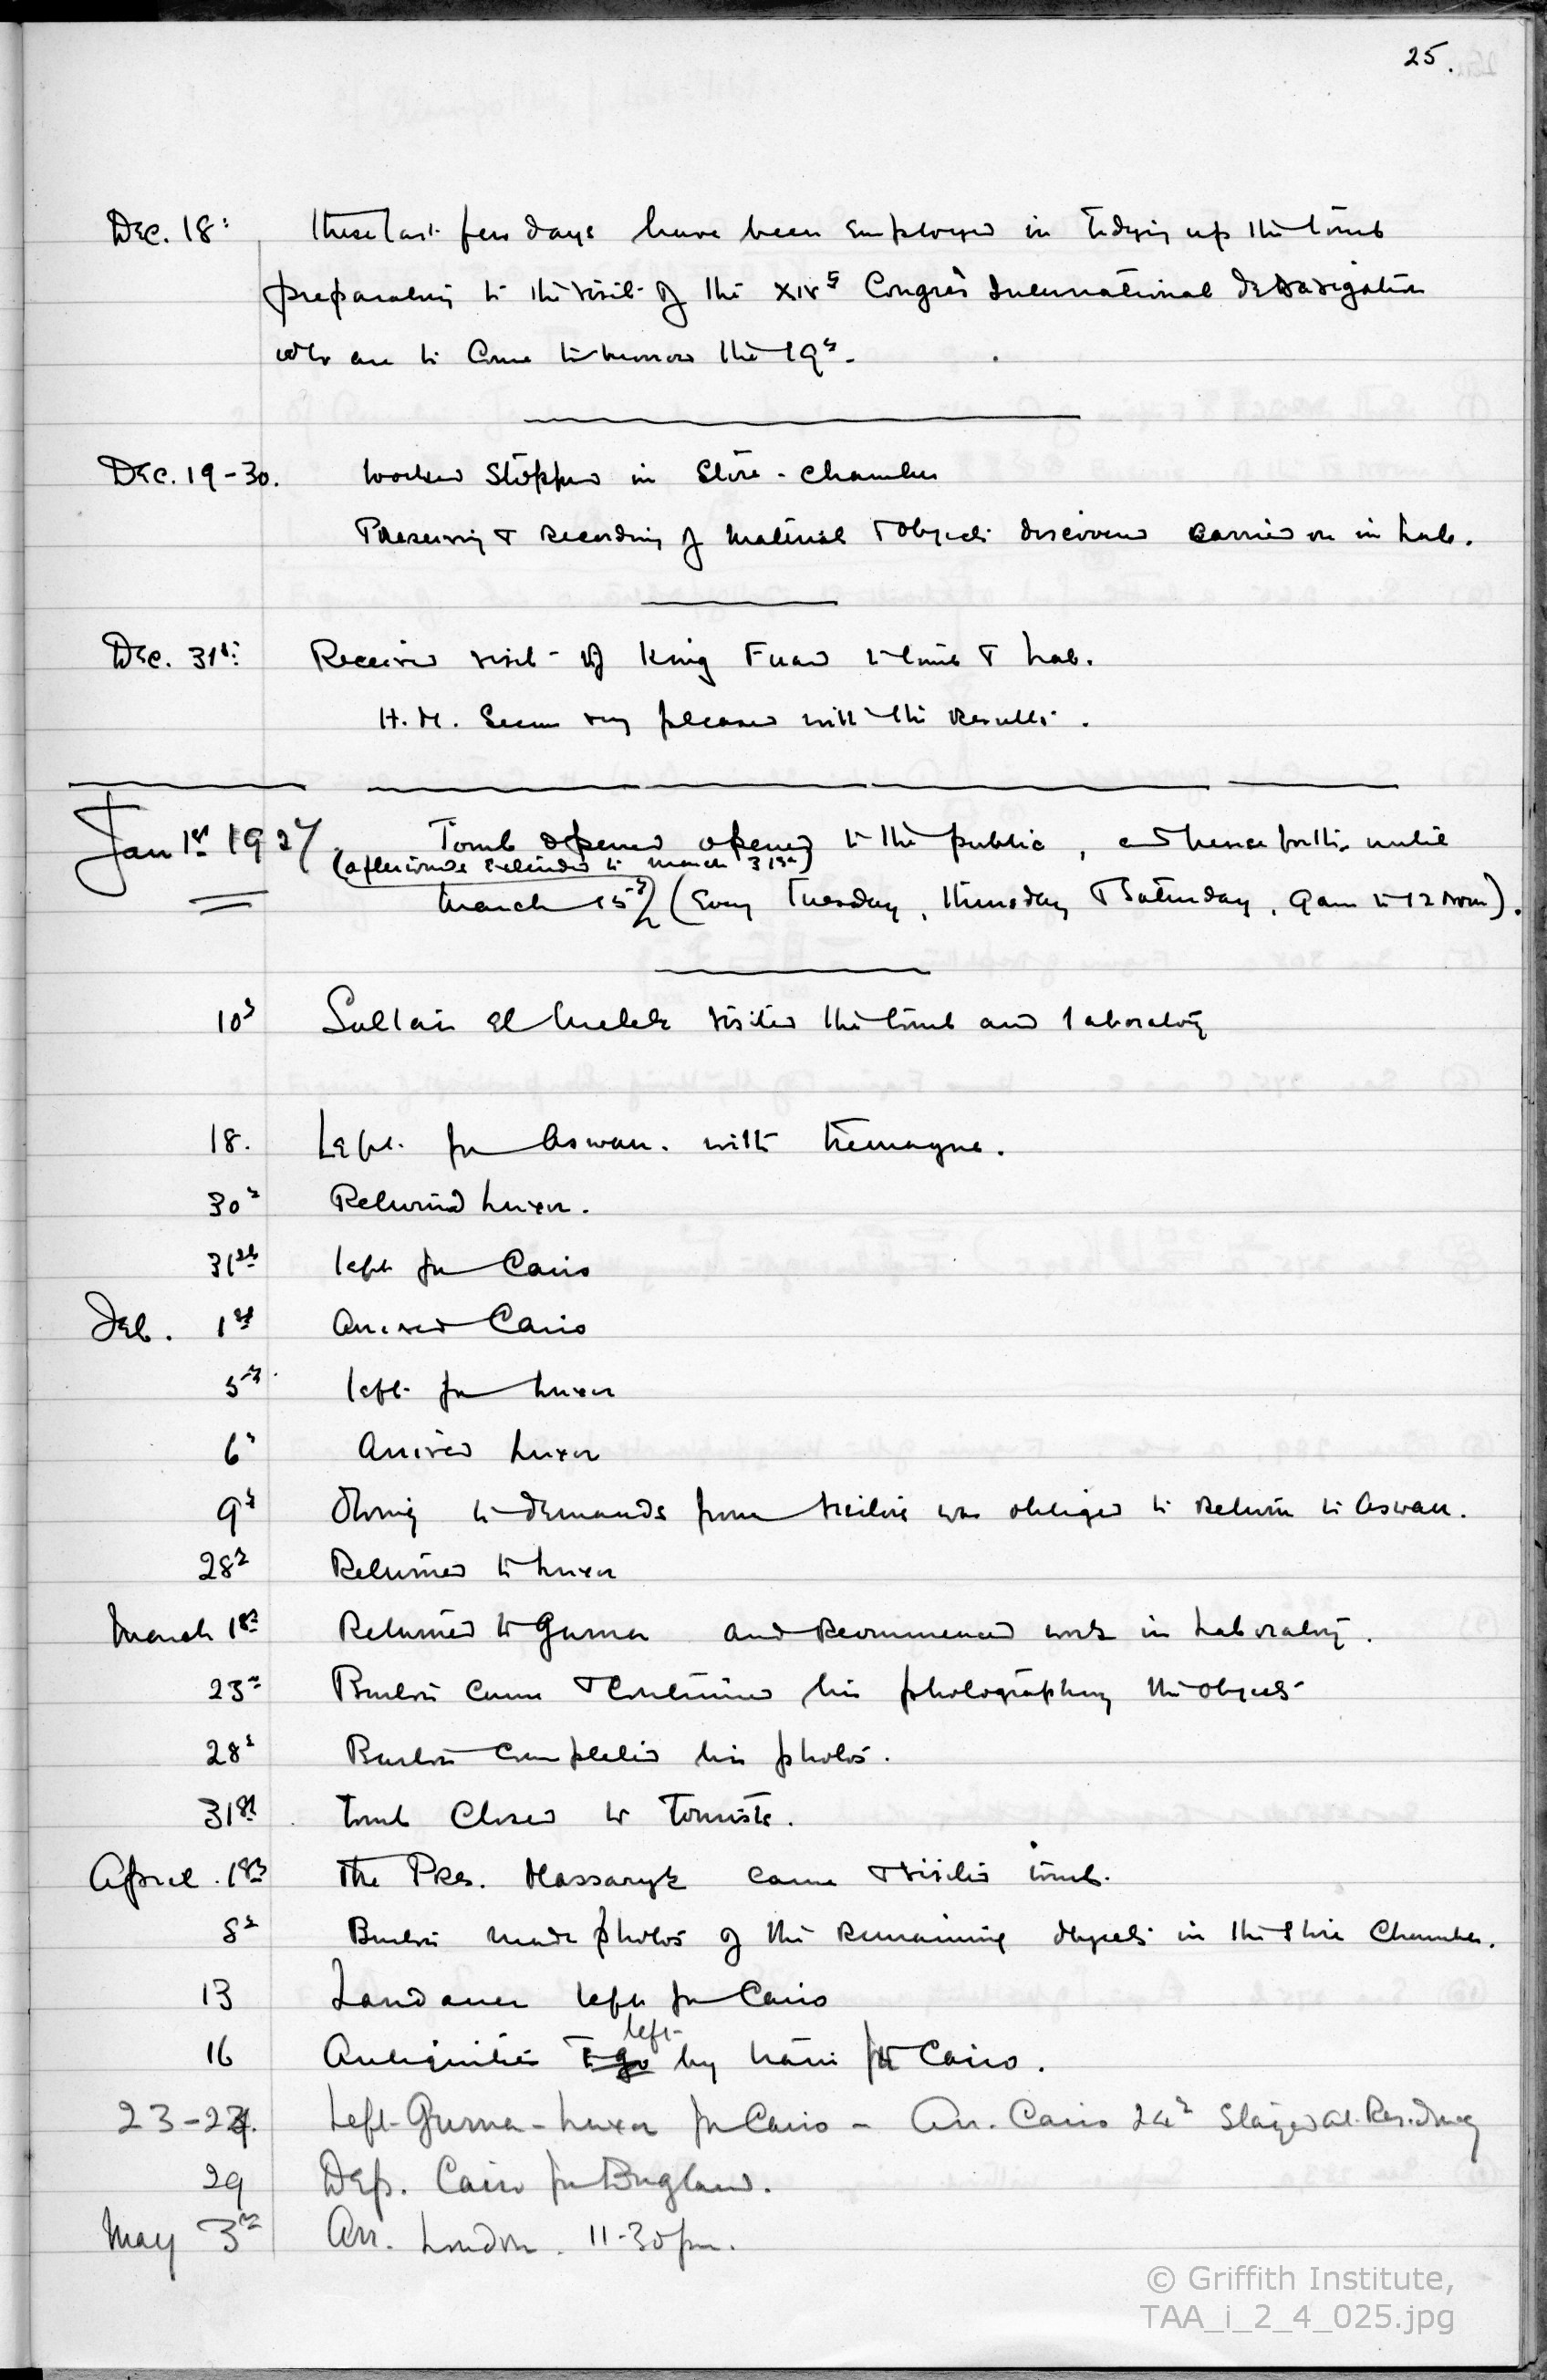 25.
Dec. 18th These last few days have been employed in tidying up the tomb
preparatory to the visit of the XIVth Congrès International de Navigation
who are to come tomorrow the 19th.
Dec. 19-30. Worked stopped in Store-chamber
Preserving & recording of material & objects discovered carried on in Lab.
Dec. 31st Received visit of King Fuad to tomb & Lab.
H.M. Seem very pleased with the results.
Jan 1st 1927. Tomb opened opened to the public, and henceforth until
(afterwards extended to March 31st)
March 15th (Every Tuesday, Thursday & Saturday, 9 am to 12 noon).
10th Sultan el Melek visited the tomb and laboratory
18. Left for Aswan. with Tremayne.
30th Returned Luxor.
31st left for Cairo
Feb. 1st Arrived Cairo
5th left for Luxor
6th Arrived Luxor
9th Owing to demands from was obliged to return to Aswan.
28th Returned to Luxor
March 1st Returned to Gurna and recommenced work in Laboratory.
23rd Burton came & continued his photographing the objects
28th Burton completed his photos.
31st Tomb closed to Tourists.
April. 1st The Pres. Massaryk came & visited tomb.
8th Burton made photos of the remaining objects in the Store Chamber.
13 Landauer left for Cairo
left
16 Antiquities to go by train for Cairo.
23-24. Left Gurna-Luxor for Cairo - Arr. Cairo 24th Stayed at Residency
29 Dep. Cairo for England.
May 3rd Arr. London. 11-30 pm.
© Griffith Institute,
TAA_i_2_4_025.jpg